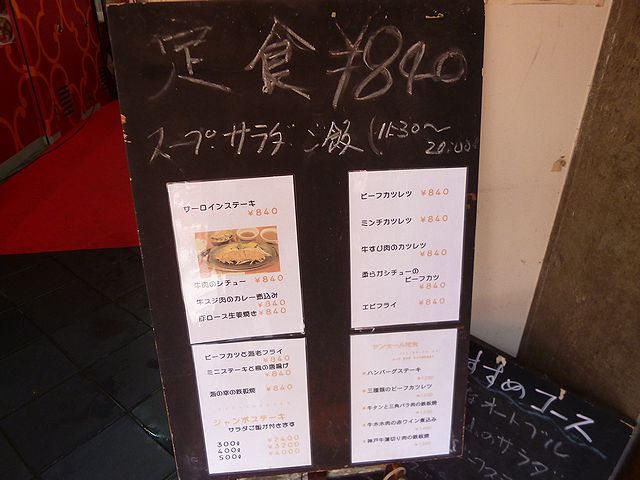 定食 ¥840
スープ サラダ ご飯 (11:30〜
20:00
サーロインステーキ
¥840
牛肉のシチュー ¥840
牛スジ肉のカレー煮込み
¥840
豚ロース生姜焼き ¥840
ビーフカツレツ ¥840
ミンチカツレツ ¥840
牛すじ肉のカツレツ
¥840
柔らかシチューの
ビーフカツ
¥840
エビフライ ¥840
ビーフカツと海老フライ
¥840
ミニステーキと鶏の唐揚げ
¥840
海の幸の鉄板焼 ¥840
ジャンボステーキ
サラダご飯が付きます
300g ¥2400
400g ¥3200
500g ¥4000
ハンバーグステーキ
三種類のビーフカツレツ
牛タンと三角バラ肉の鉄板焼
牛ホホ肉の赤ワイン煮込み
神戸牛薄切り肉の鉄板焼
すすめコース
オードブル
のサラダ